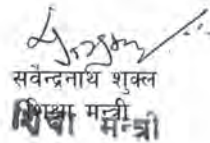 सर्वेन्द्रनाथ शुक्ल
शिक्षा मन्त्री
शिक्षा मन्त्री